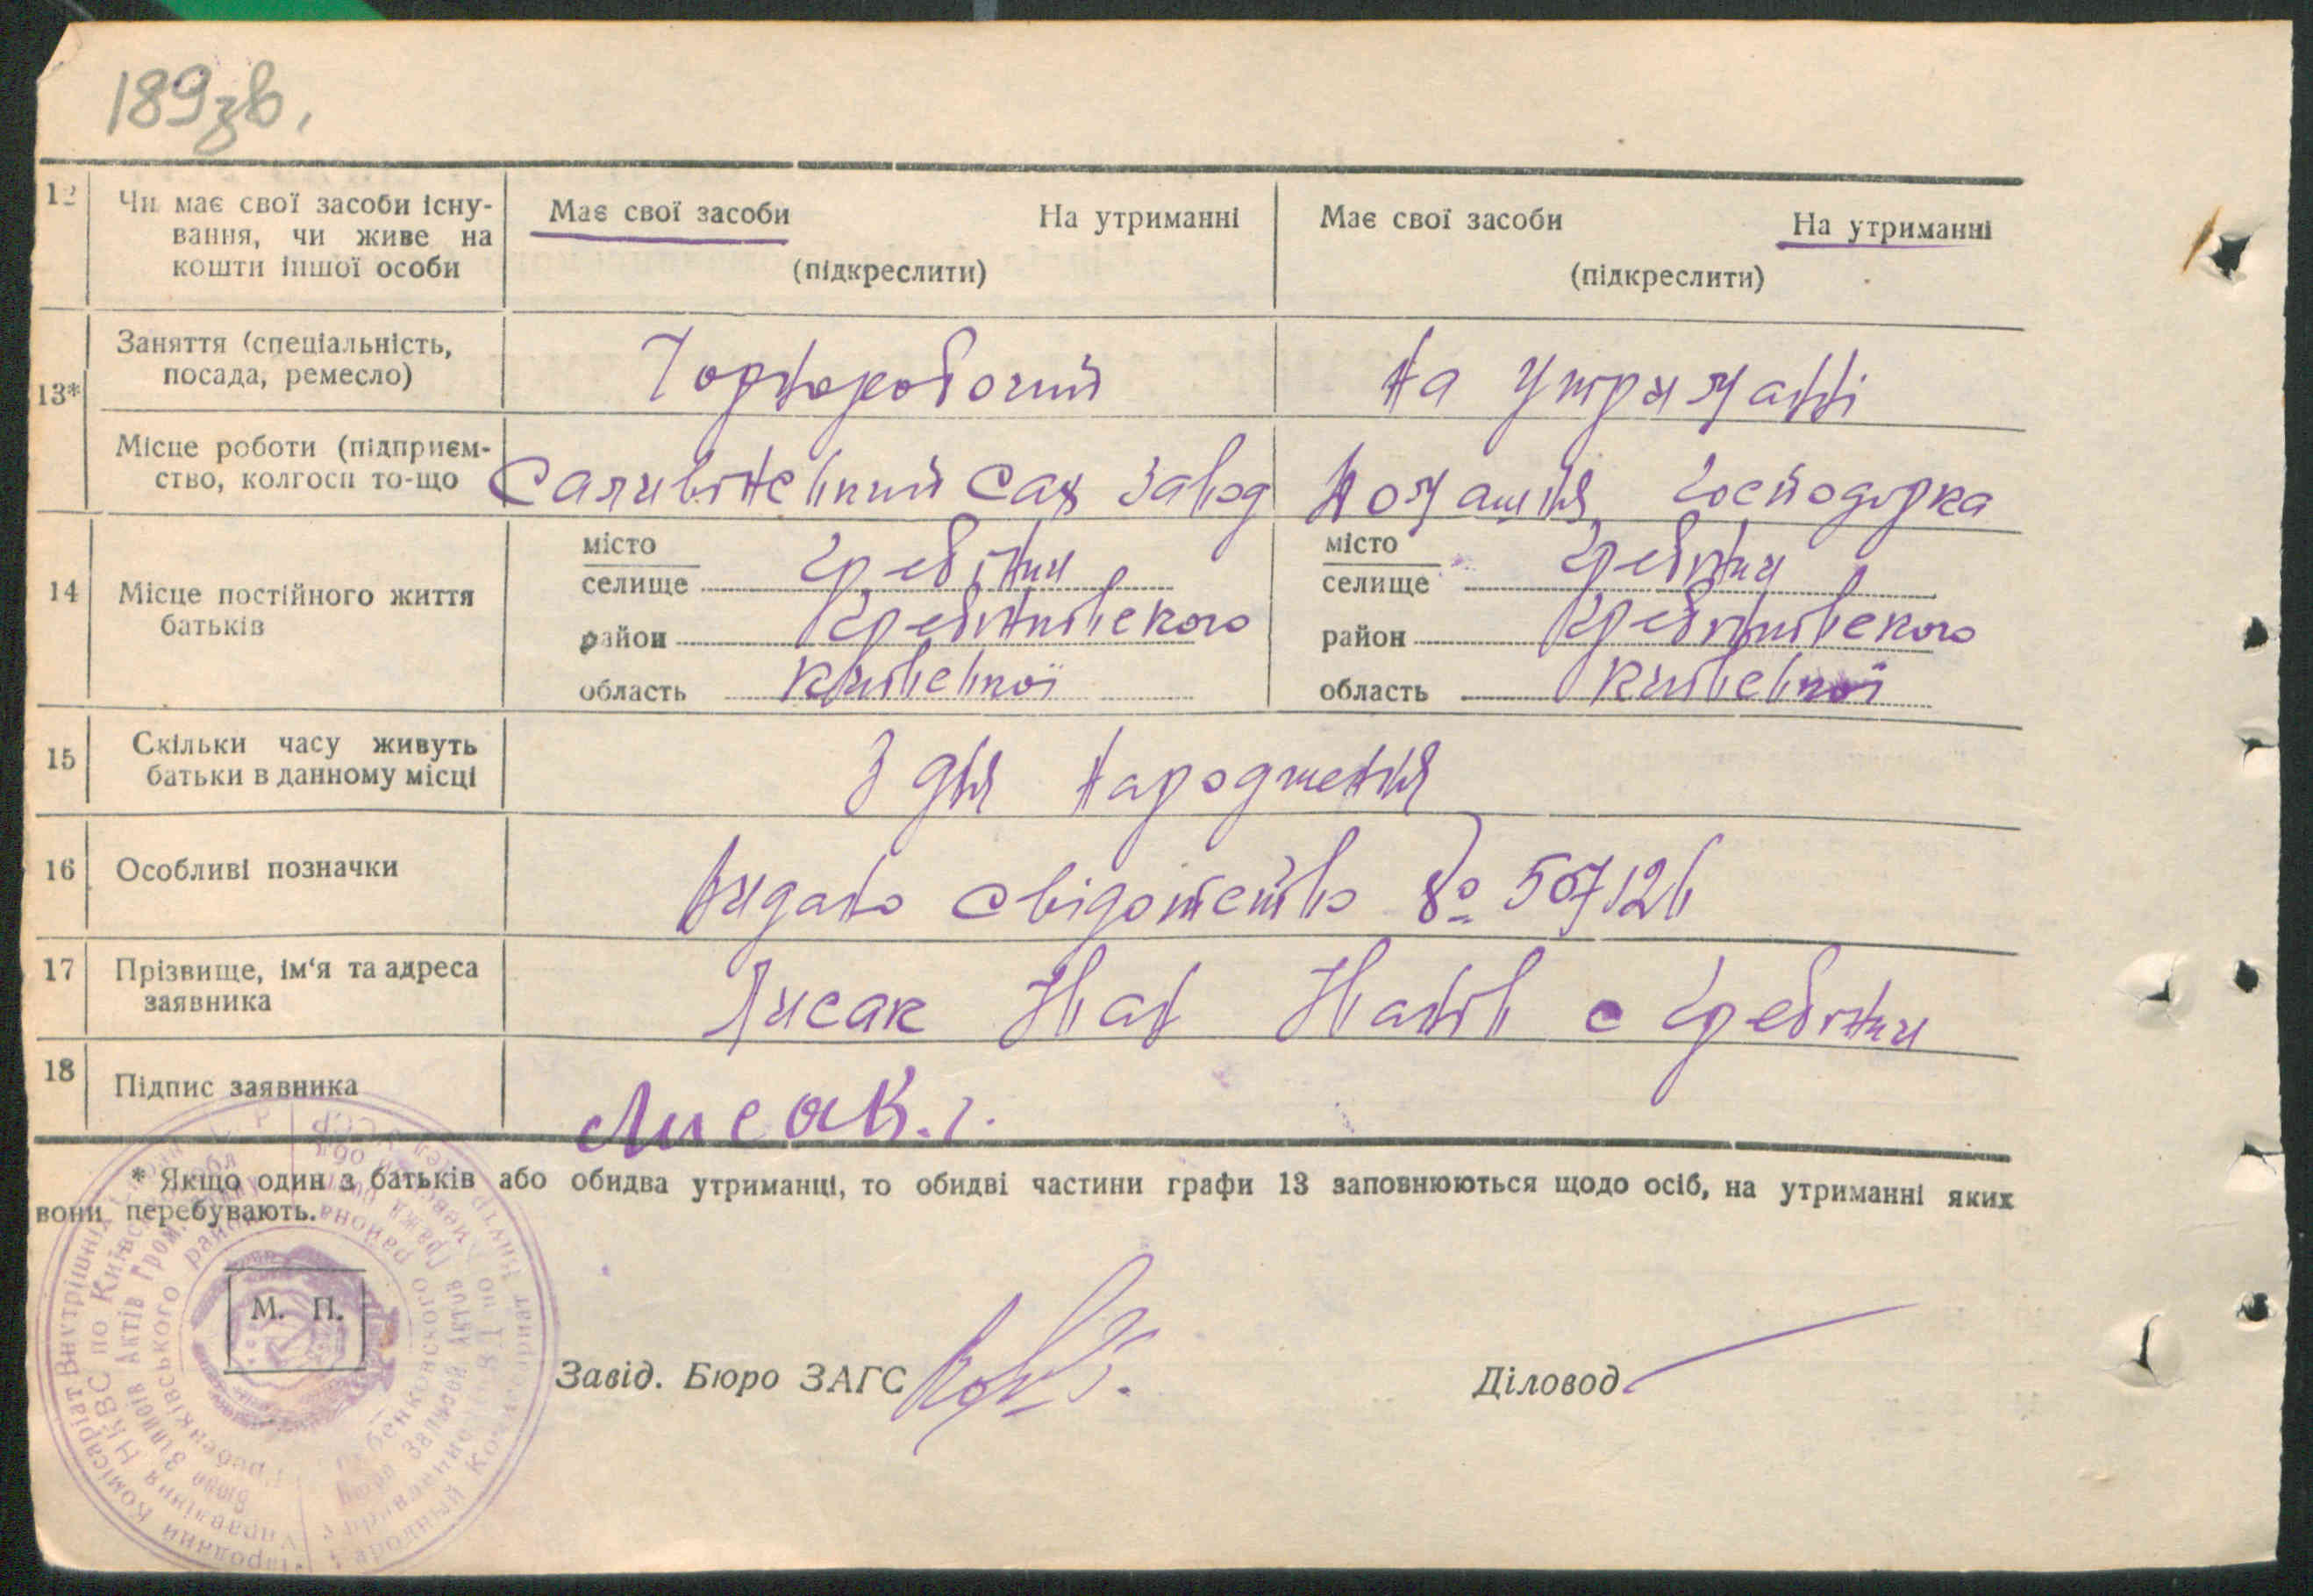 189зв.
12 Чи має свої засоби існу-
вання, чи живе на
кошти іншої особи
Має свої засоби На утриманні
(підкреслити)
Має свої засоби На утриманні
(підкреслити)
13*
Заняття (спеціальність,
посада, ремесло)
Чорноробочий
На утриманні
Місце роботи (підприєм-
ство, колгосп то-що
Саливонсвький Сах завод
Домашня господарка
14 Місце постійного життя
батьків
місто
селище Гребінки
район Гребінківского
область Київсвкої
місто
селище Гребінки
район Гребінківского
область Київсвкої
15 Скільки часу живуть
батьки в данному місці
З дня народження
16 Особливі позначки
Видано свідотство №
17 Прізвище, ім'я та адреса
заявника
Лисак Ів с Гребінки
18 Підпис заявника
Лисак.
* Якщо один з батьків або обидва утриманці, то обидві частини графи 13 заповнюються щодо осіб, на утриманні яких
вони перебувають.
М. П.
Завід. Бюро ЗАГС
Діловод